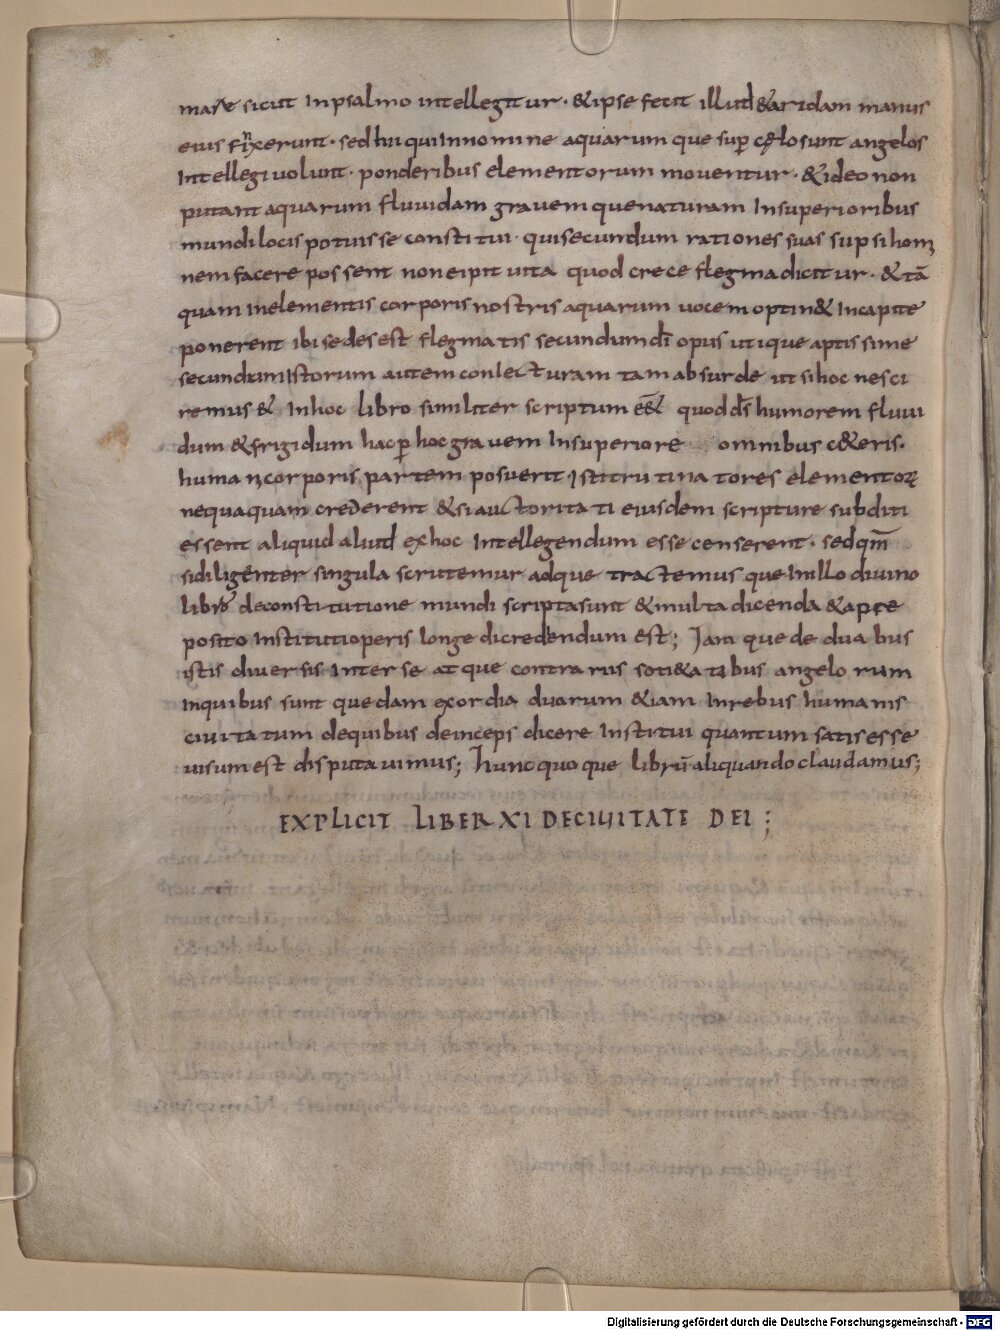 mare sicut Inpsalmo intellegitur · &ipse fecit illud &aridam manus
eius finxerunt · sed hii qui Innomine aquarum que sup̄ cęlo sunt angelos
Intellegi uolunt · ponderibus elementorum mouentur · & ideo non
putant aquarum fluuidam grauemquenaturam Insuperioribus
mundi locis potuisse constitui · quisecundum rationes suas sup si homi
nem facere possent non eipituita quod crece flegma dicitur · & tā
quam Inelementis corporis nostris aquarum uocem optin& Incapite
ponerent ibi sedes est flegmatis secundum dī opus utique aptissime
secundum Istorum autem coniecturam tam absurde ut si hoc nesci
remus & Inhoc libro similiter scriptum e&́ quod ds̄ humorem fluui
dum & frigidum hac p̄ hoc grauem Insuperiore omnibus c&eris ·
humani corporis partem posuerit isti trutinatores elementoꝝ
nequaquam crederent & si auctoritati eiusdem scripture subditi
essent aliquid aliud ex hoc Intellegendum esse censerent · sed qm̄
si diligenter singula scrutemur adque tractemus que Inillo diuino
libro deconstitutione mundi scripta sunt & multa dicenda & apre
posito Institutioperis longe dicredendum est; Iam que de duabus
istis diuersis Inter se atque contrariis soti&atibus angelorum
Inquibus sunt quedam exordia duarum &iam Inrebus humanis
ciuitatum dequibus deinceps dicere Institui quantum satis esse
uisum est disputauimus; hunc quoque librū aliquando claudamus;
EXPLICIT LIBER XI DECIUITATE DEI ;
Digitalisierung gefördert durch die Deutsche Forschungsgemeinschaft - DFG